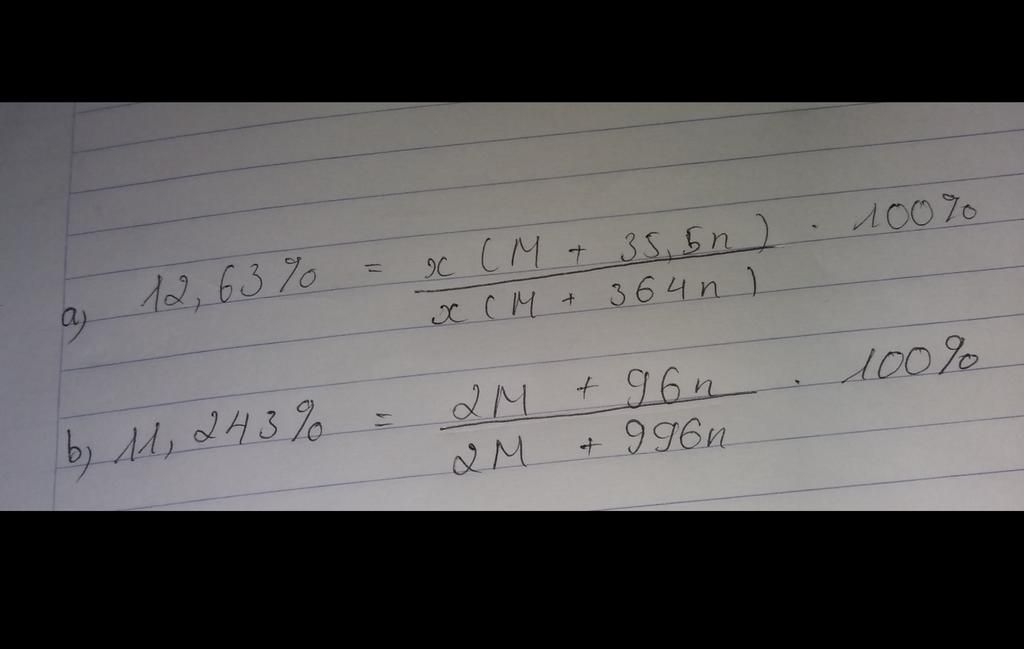 a) 12,63% = x(M + 35,5n) / x(M + 364n) · 100%
b) 11,243% = 2M + 96n / 2M + 996n · 100%